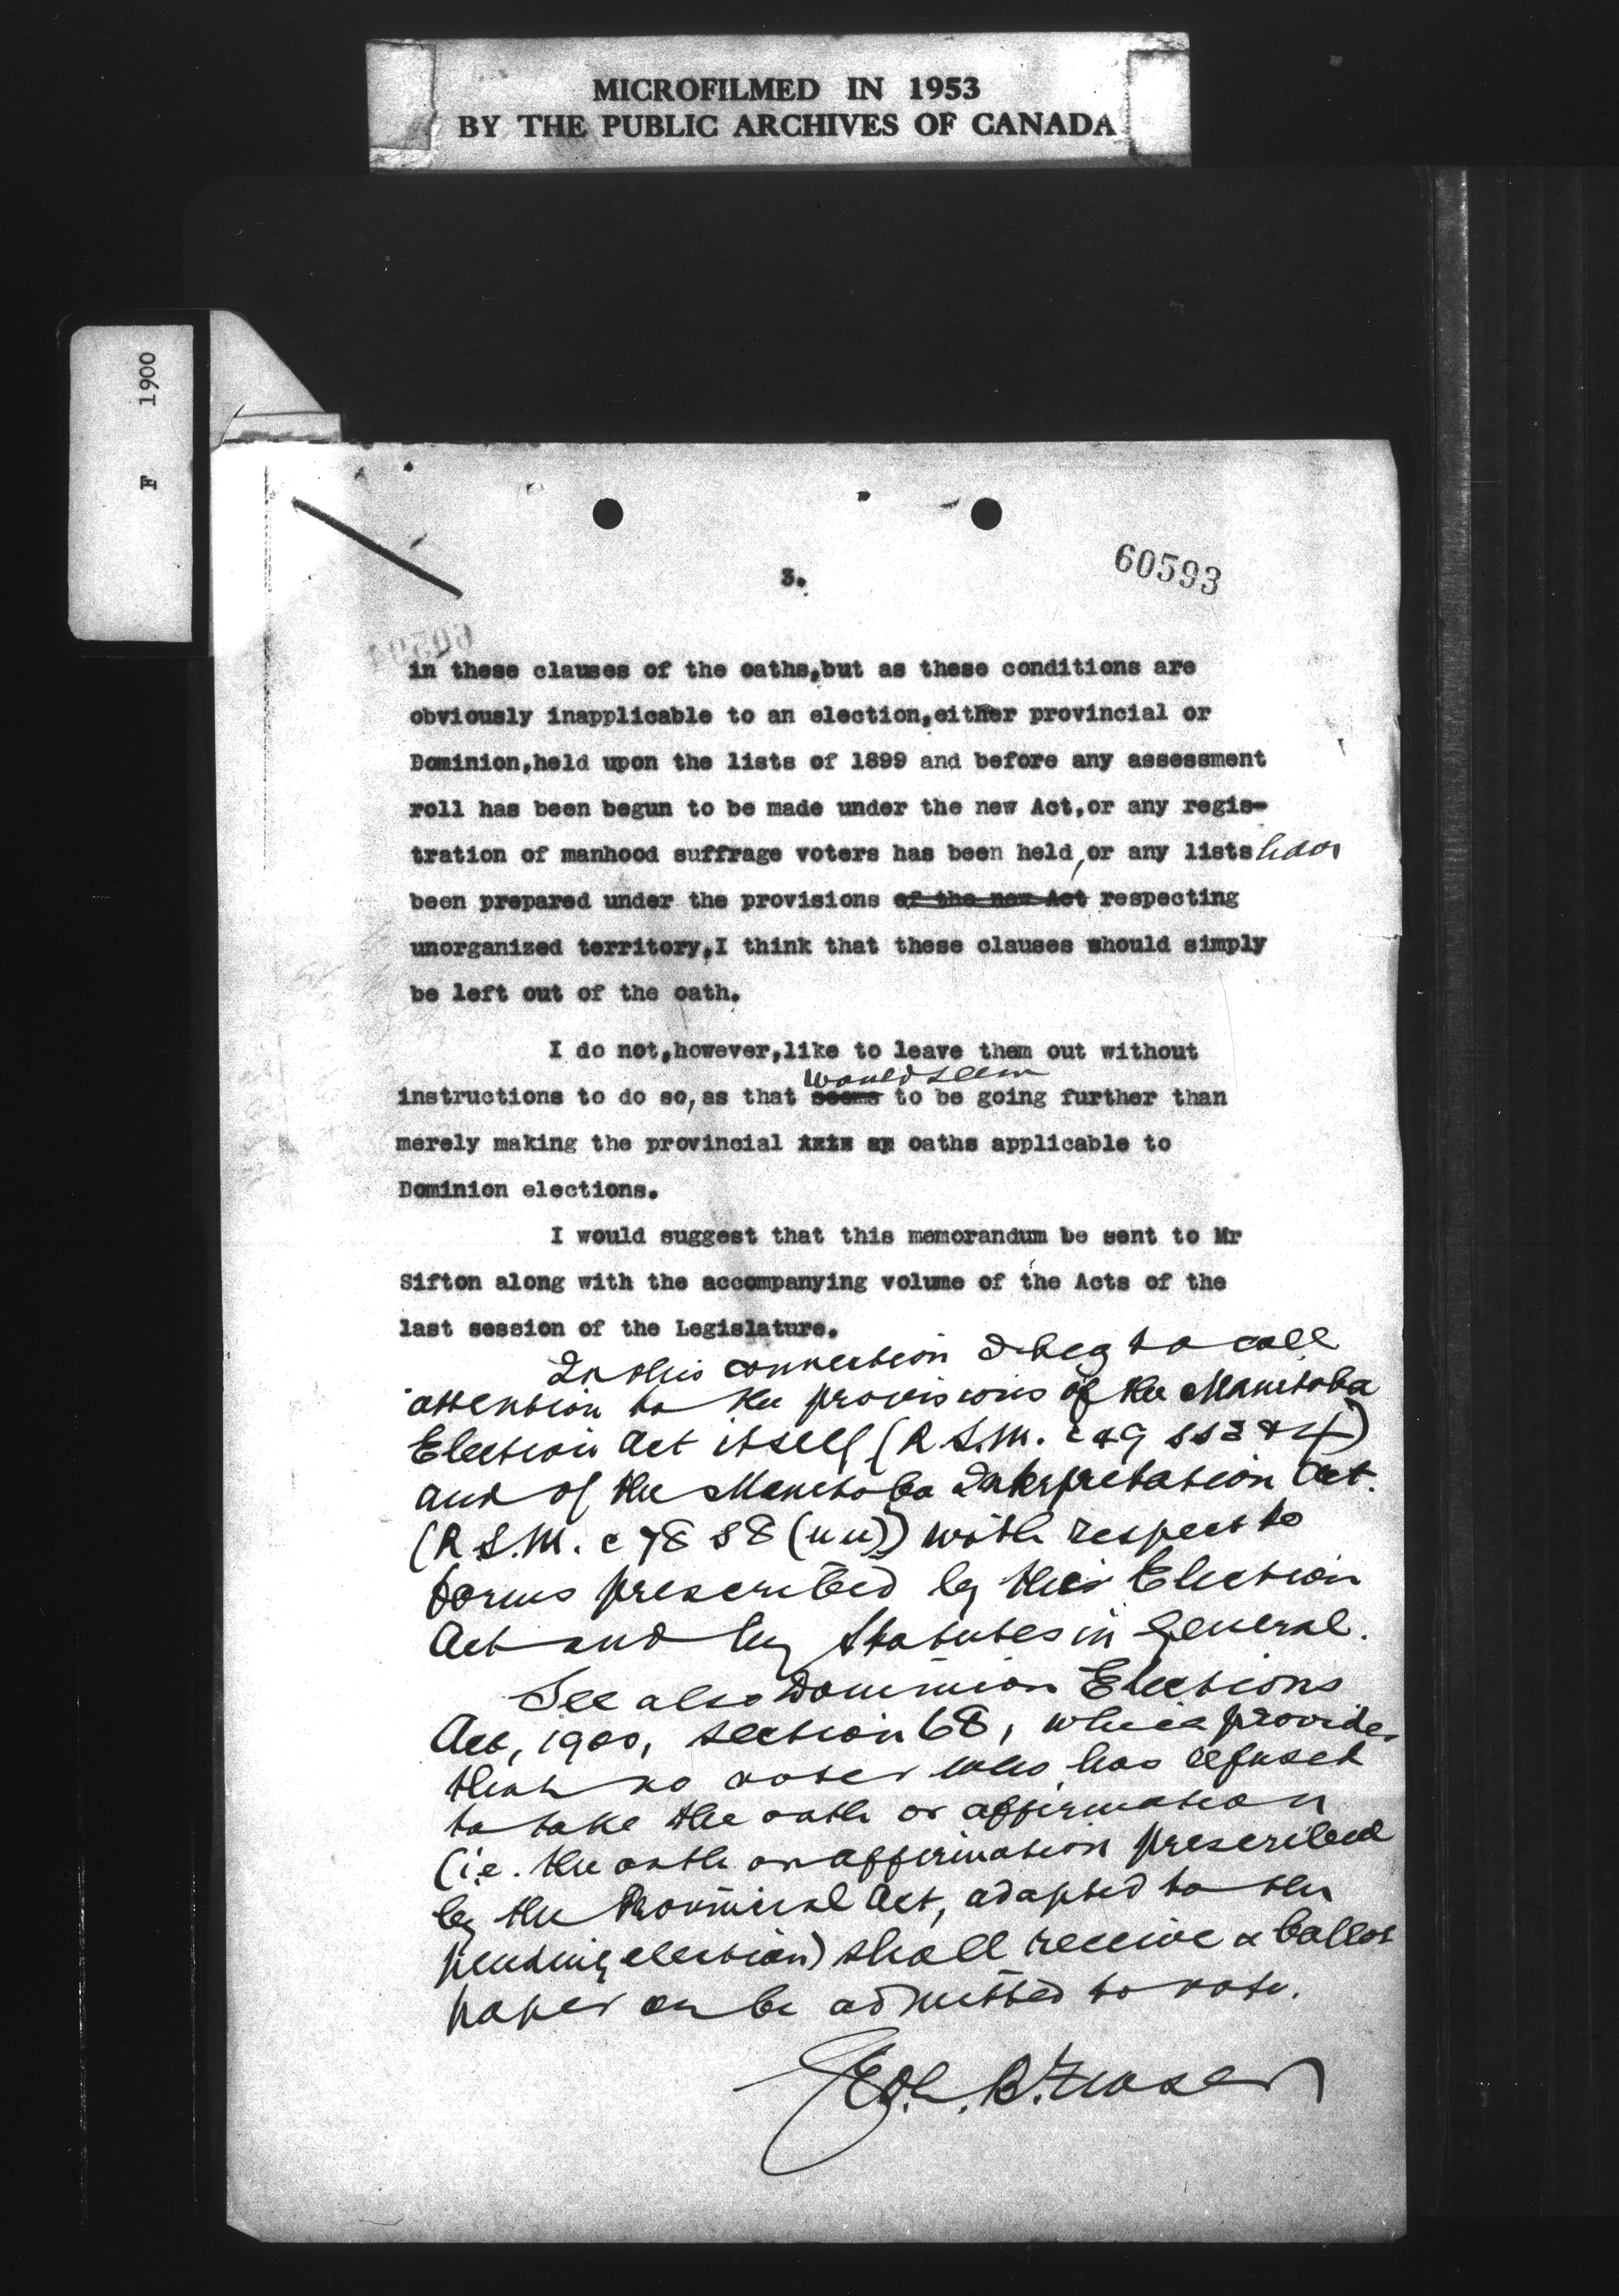 MICROFILMED IN 1953
BY THE PUBLIC ARCHIVES OF CANADA
F 1900
60593
3.
in these clauses of the oaths,but as these conditions are
obviously inapplicable to an election,either provincial or
Dominion,held upon the lists of 1899 and before any assessment
roll has been begun to be made under the new Act,or any regis-
tration of manhood suffrage voters has been held, or any lists
been prepared under the provisions of the new Act respecting
unorganized territory,I think that these clauses should simply
be left out of the oath.
I do not,however,like to leave them out without
would seem
instructions to do so, as that seems to be going further than
merely making the provincial oaths applicable to
Dominion elections.
I would suggest that this memorandum be sent to Mr
Sifton along with the accompanying volume of the Acts of the
last session of the Legislature.
In this connection I beg to call
attention to the provisions of the Manitoba
Election Act itself (R.S.M. c 49 ss 3 & 4)
and of the Manitoba Interpretation Act.
(R.S.M. c 78 s 8 (uu)) with respect to
forms prescribed by their Election
Act and by Statutes in general.
See also Dominion Elections
Act, 1900, section 68, which provides
that no voter who has refused
to take the oath or affirmation
(i.e. the oath or affirmation prescribed
by the Provincial Act, adapted to the
pending election) shall receive a ballot
paper or be admitted to vote.
Fraser